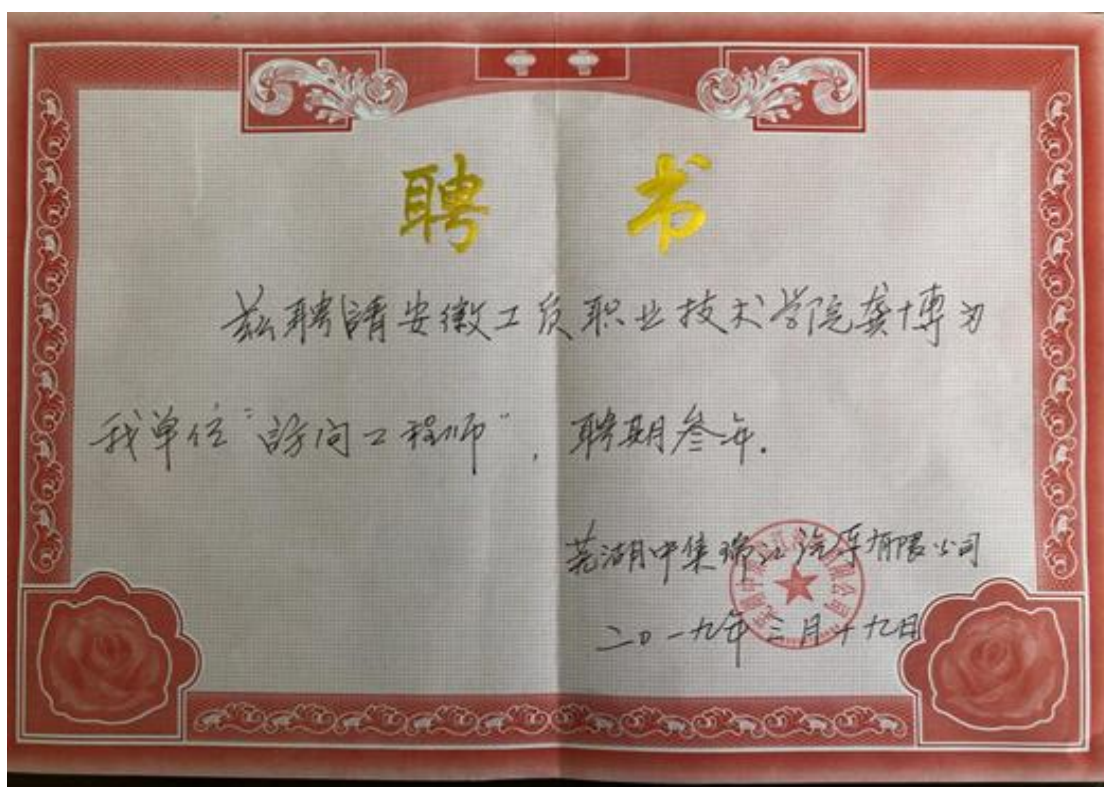 聘 书
兹聘请安徽工贸职业技术学院龚博为
我单位“访问工程师”，聘期叁年.
芜湖中集瑞江汽车有限公司
二0一九年三月十九日